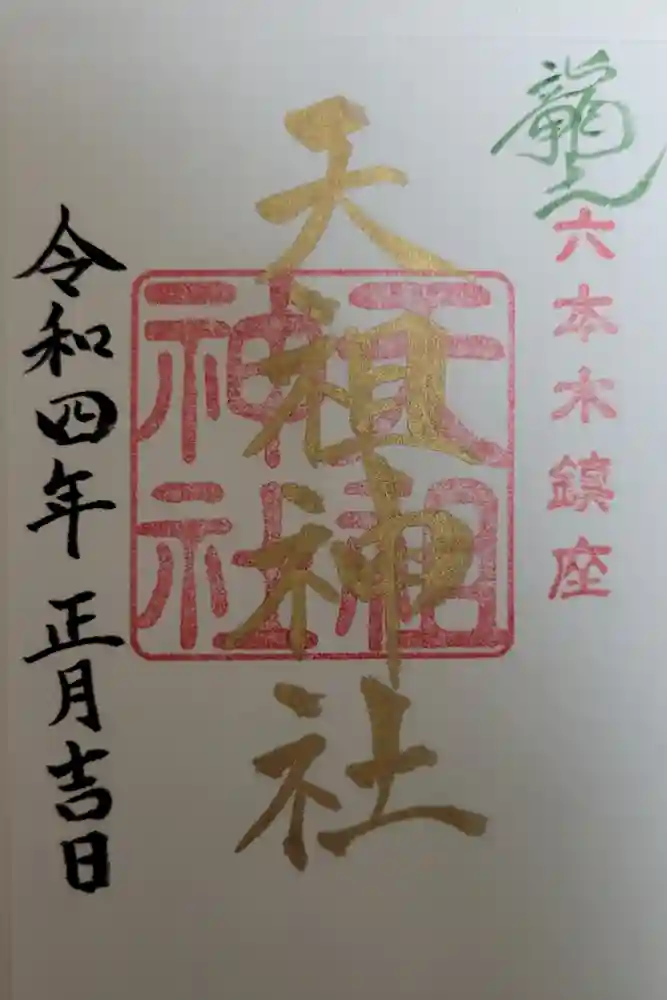 龍
六本木鎮座
天祖神社
天祖
神社
令和四年 正月吉日